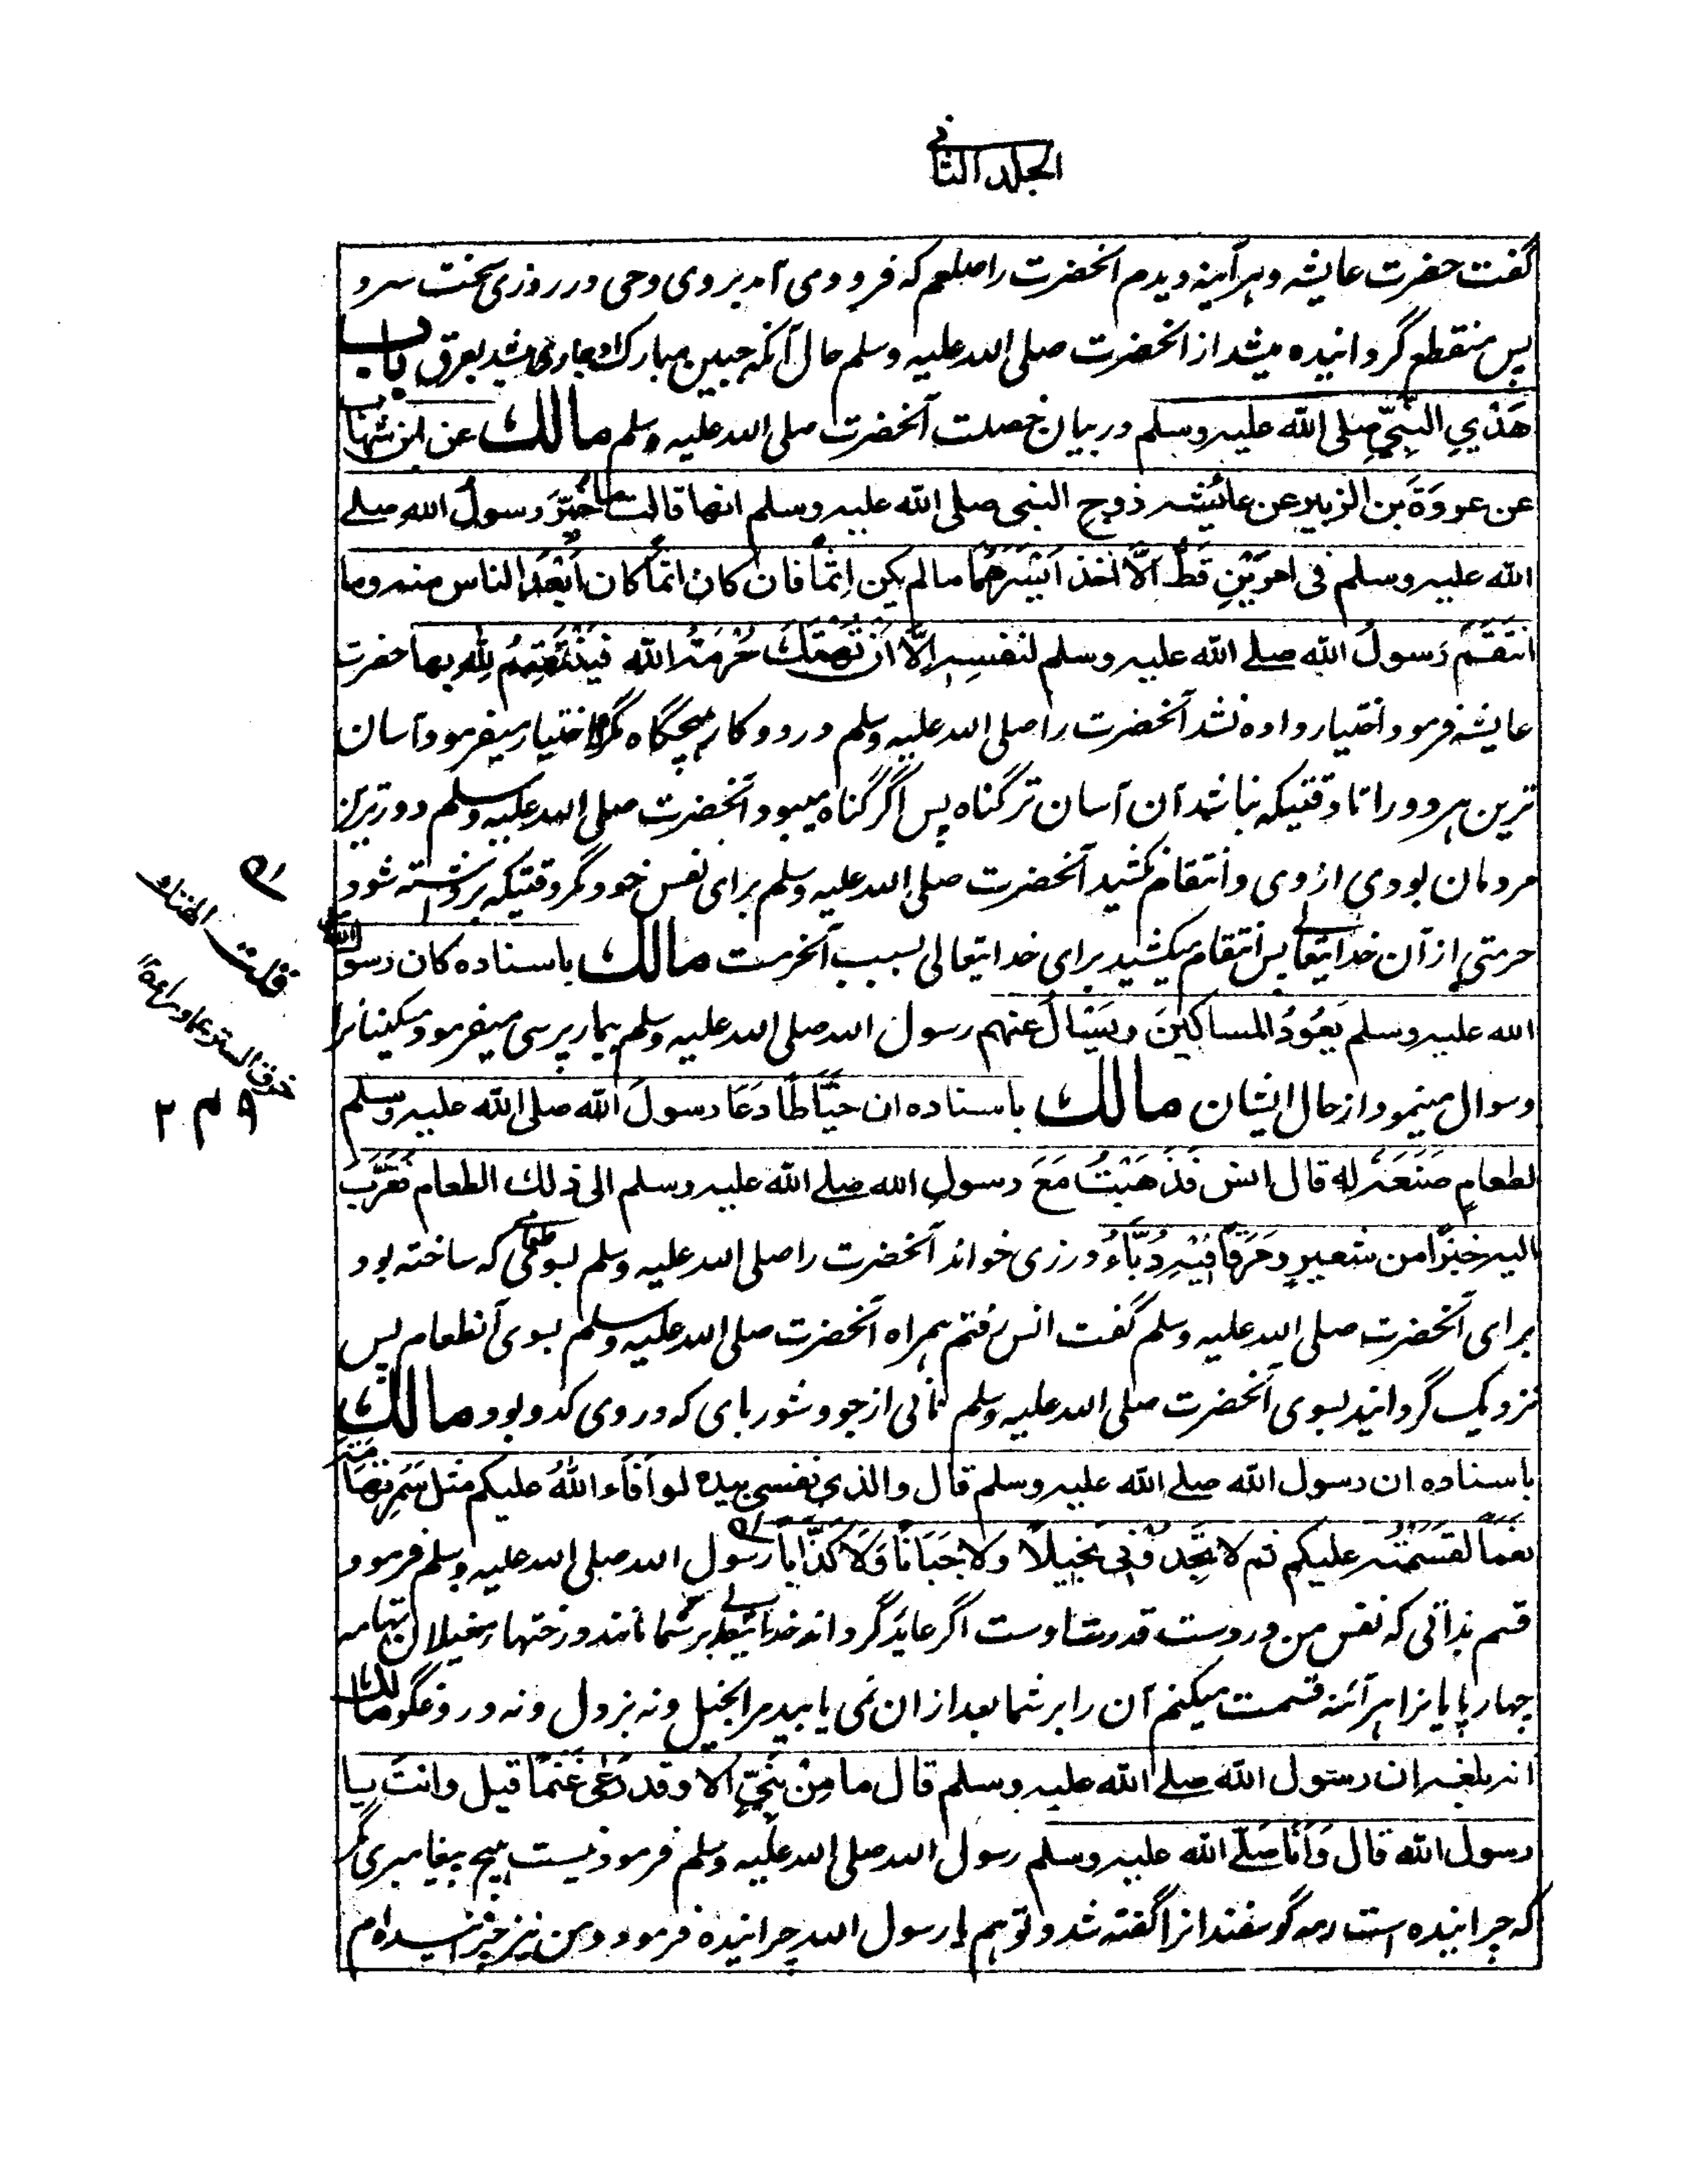 الجلد الثانی
گفت حضرت عایشه و هر آینه دیدم آنحضرت را صلعم که فرود می آمد بر وی وحی در روزی سخت سرد
پس منقطع گردانیده میشد از آنحضرت صلی الله علیه وسلم حال آنکه جبین مبارک او جاری میشد بعرق باب
هَدْیِ النَّبِیِّ صلی الله علیه وسلم در بیان خصلت آنحضرت صلی الله علیه وسلم مالك عن ابن شهاب
عن عروة بن الزبیر عن عائشه زوج النبی صلی الله علیه وسلم انها قالت ما خُیِّرَ رسولُ الله صلے
الله علیه وسلم فی امرَیْنِ قَطُّ اَلّا اخذ اَیْسَرَهُمَا ما لم یکن اِثمًا فان کان اثمًا کان اَبْعَدَ الناس منه وما
انتقَمَ رَسولُ الله صلے الله علیه وسلم لنفسِه اِلَّا اَنْ تُنْتَهَكَ حُرْمَةُ الله فیَنْتَقِمُ لِلّٰهِ بها حضرت
عایشه فرمود اختیار داده نشد آنحضرت را صلی الله علیه وسلم در دو کار هیچگاه مگر اختیار میفرمود آسان
ترین هر دو را تا وقتیکه نباشد آن آسان تر گناه پس اگر گناه میبود آنحضرت صلی الله علیه وسلم دورترین
مردمان بودی از وی و انتقام نکشید آنحضرت صلی الله علیه وسلم برای نفس خود مگر وقتیکه برداشته شود
حرمتی از آن خدایتعالے پس انتقام میکشید برای خدایتعالی بسبب آنحرمت مالك باسناده کان رسول الله صلی
الله علیه وسلم یَعُوْدُ المساکینَ ویَسْئَالُ عنهم رسول الله صلی الله علیه وسلم بیمار پرسی میفرمود مسکینانرا
و سوال مینمود از حال ایشان مالك باسناده ان خیّاطًا دَعَا رسولَ الله صلی الله علیه وسلم
لطعامٍ صَنَعَهٗ له قال انس فَذَهَبْتُ مَعَ رسولِ الله صلے الله علیه وسلم الی ذلك الطعام فقَرَّبَ
الیه خبزًا من شعیرٍ ومَرَقًا فیْهِ دُبَّاءٌ درزی خواند آنحضرت را صلی الله علیه وسلم بسوی طعامی که ساخته بود
برای آنحضرت صلی الله علیه وسلم گفت انس رفتم همراه آنحضرت صلی الله علیه وسلم بسوی آنطعام پس
نزدیک گردانید بسوی آنحضرت صلی الله علیه وسلم نانی از جو و شوربای که در وی کدو بود مالك
باسناده ان رسول الله صلے الله علیه وسلم قال والذی نفسی بیده لو اَفَاءَ اللهُ علیکم مثلَ سَمُرِ تِهَامَةَ
نعَمًا لقَسَمْتُه علیکم ثم لا تجِدُوْنِی بَخِیلًا ولا جَبَانًا وَلَا كَذَّابًا رسول الله صلی الله علیه وسلم فرمود
قسم بذاتی که نفس من در دست قدرت اوست اگر عاید گرداند خدایتعالے بر شما مانند درختهای مغیلان تهامه
چهارپایانرا هر آئنه قسمت میکنم آن را بر شما بعد از ان نمی یابید مرا بخیل و نه بزدل و نه دروغگو مالك
انه بلغه ان رسول الله صلے الله علیه وسلم قال ما مِنْ نبِیٍّ الا وقد رَعٰی غَنَمًا قیل وانتَ یا
رسول الله قال وَاَنَا صلے الله علیه وسلم رسول الله صلی الله علیه وسلم فرمود نیست هیچ پیغامبری مگر
که چرانیده است رمه گوسفندانرا گفته شد و تو هم یا رسول الله چرانیده فرمود و من نیز چرانیده ام
قلت